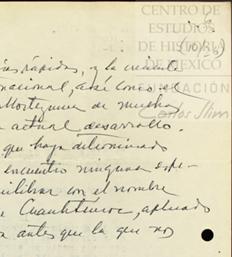 CENTRO DE
ESTUDIOS
DE HISTORIA
DE MÉXICO
FUNDACIÓN
Carlos Slim
más rápidos, y la creciente
nacional, así como el
Moctezuma de muchos
actual desarrollo.
que haya determinado
encuentro ninguna espe-
uilibrar con el nombre
e Cuauhtémoc, aplicado
antes que la que nos